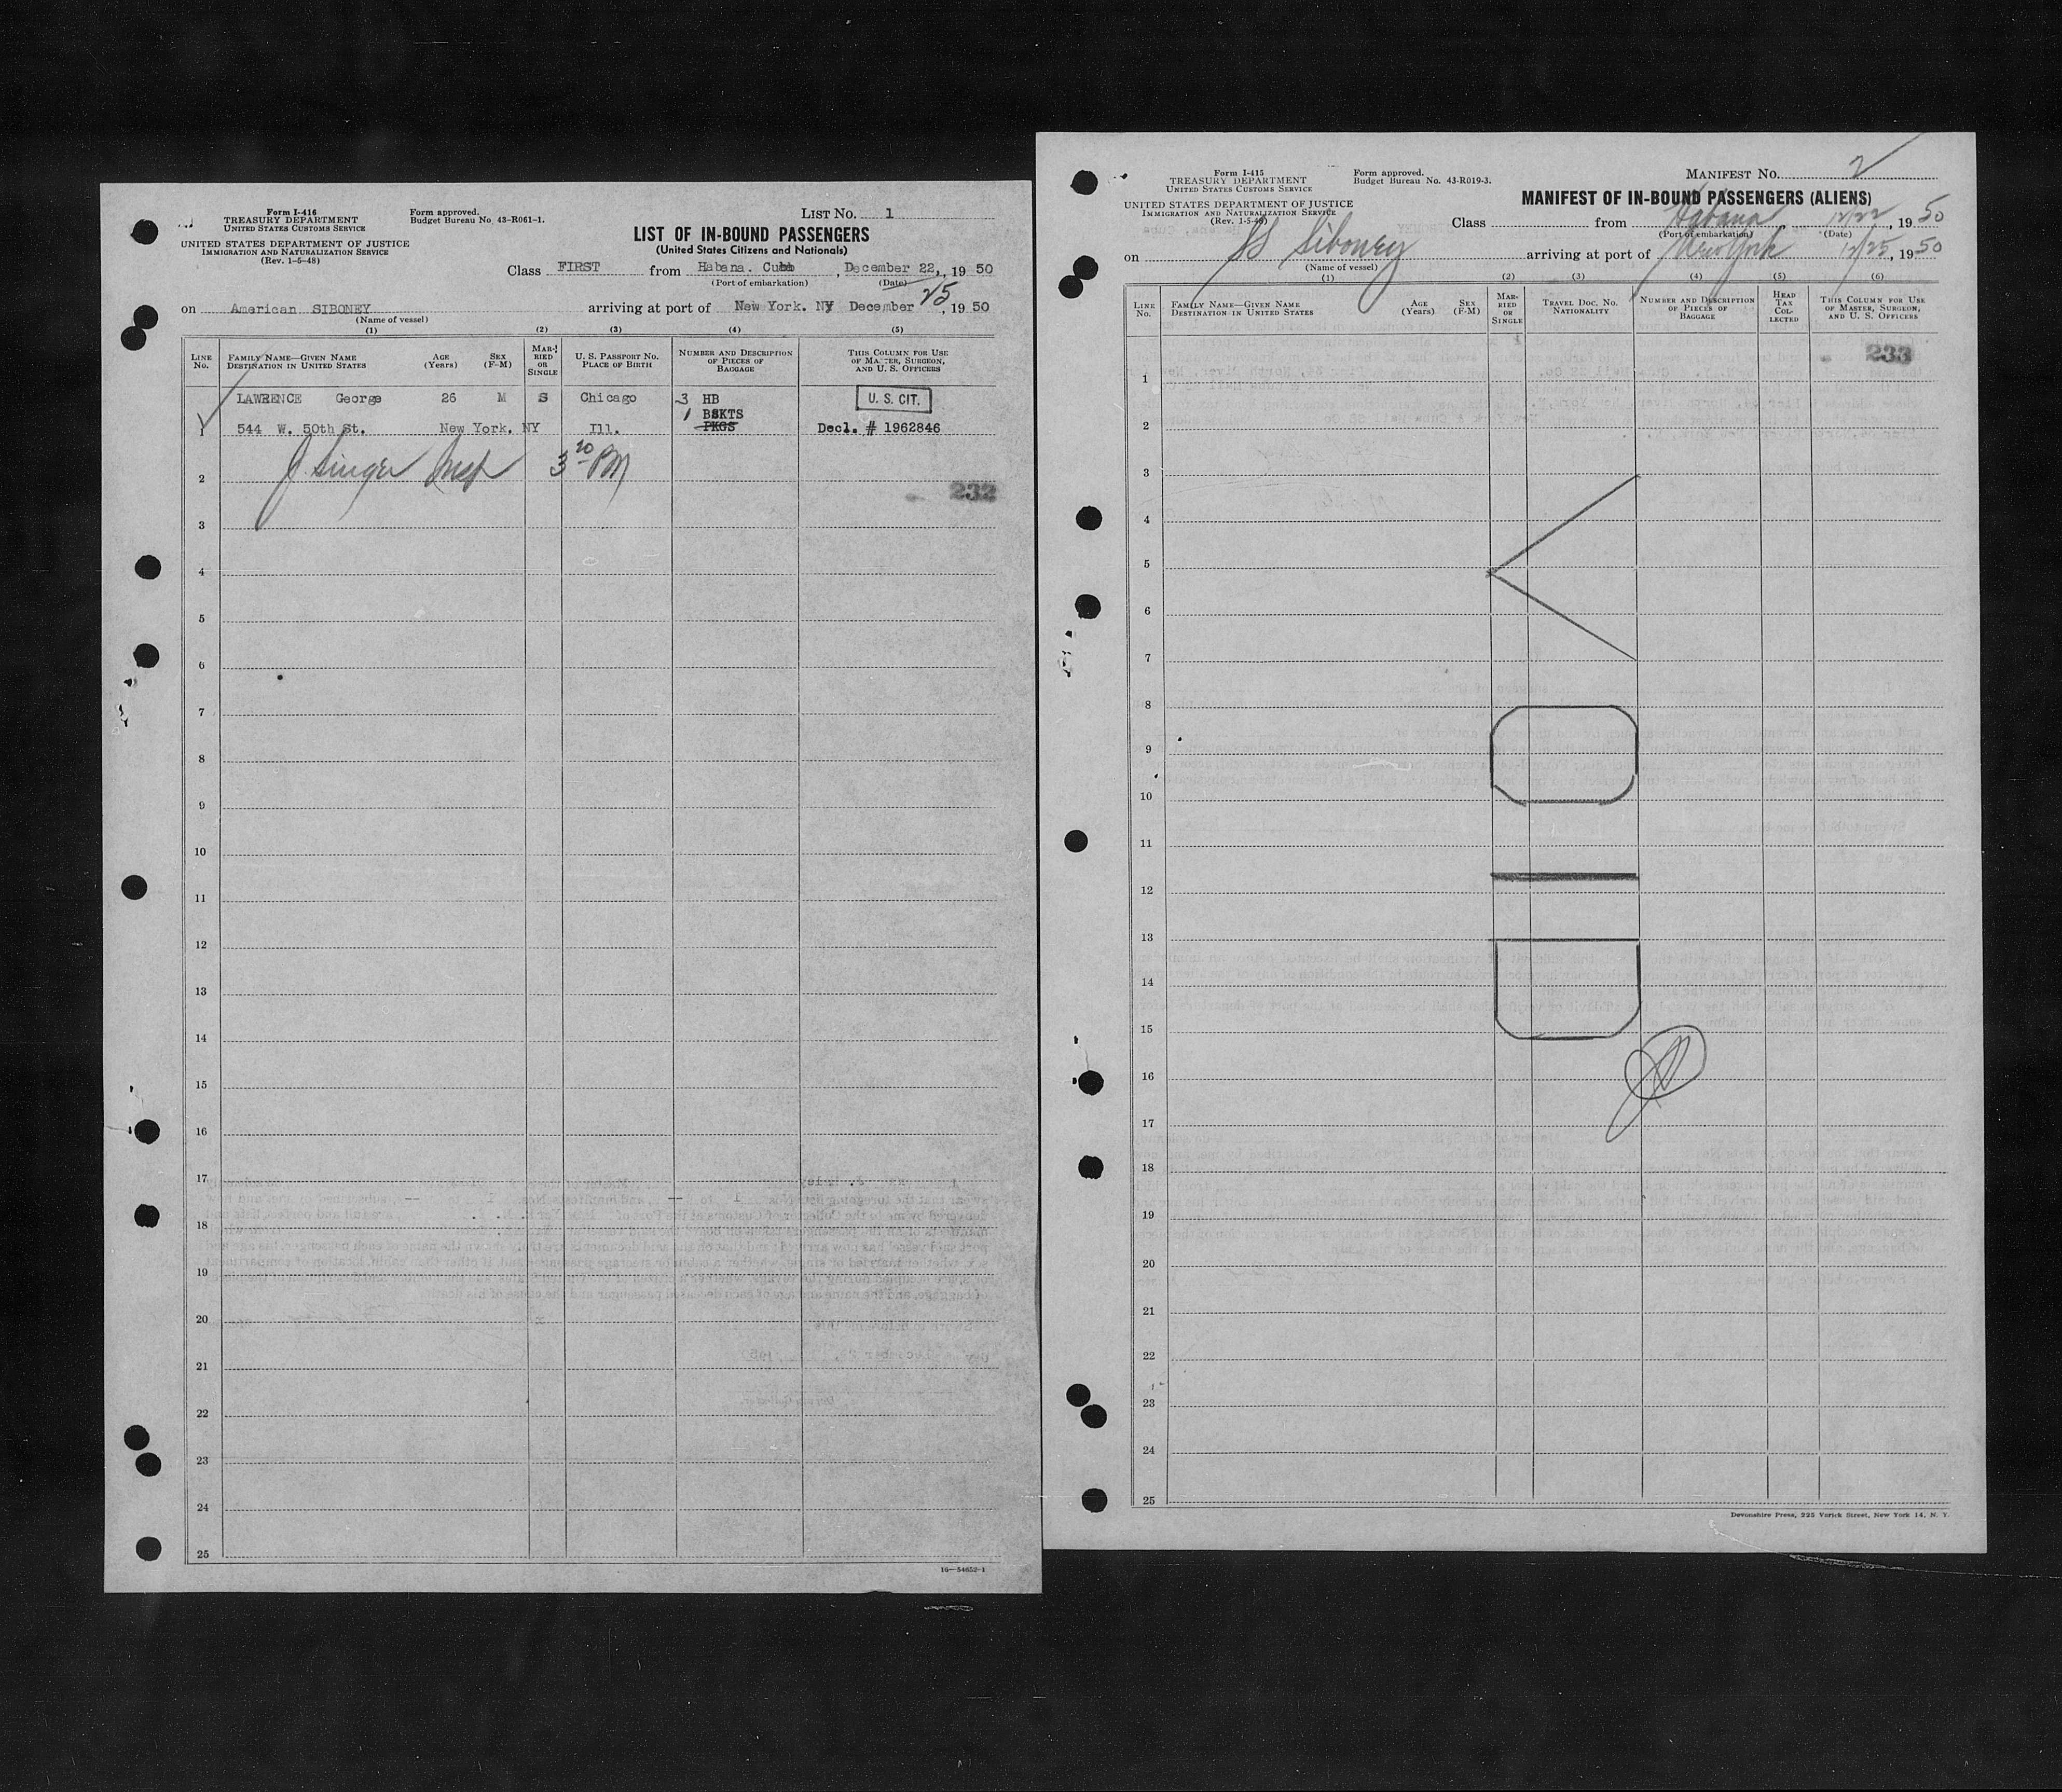 Form I-416
TREASURY DEPARTMENT
UNITED STATES CUSTOMS SERVICE
Form approved.
Budget Bureau No. 43-R061-1.
LIST No. 1
UNITED STATES DEPARTMENT OF JUSTICE
IMMIGRATION AND NATURALIZATION SERVICE
(Rev. 1-5-48)
LIST OF IN-BOUND PASSENGERS
(United States Citizens and Nationals)
Class FIRST from Habana. Cuba , December 22, , 19 50
(Port of embarkation) (Date)
on American SIBONEY arriving at port of New York. NY December 25 , 19 50
(Name of vessel)
(1) (2) (3) (4) (5)
LINE No.
FAMILY NAME—GIVEN NAME
DESTINATION IN UNITED STATES
AGE (Years)
SEX (F-M)
MARRIED OR SINGLE
U. S. PASSPORT No.
PLACE OF BIRTH
NUMBER AND DESCRIPTION OF PIECES OF BAGGAGE
THIS COLUMN FOR USE OF MASTER, SURGEON, AND U. S. OFFICERS
LAWRENCE George 26 M S Chicago 3 HB U. S. CIT.
1 BSKTS
1 544 W. 50th St. New York. NY Ill. PKGS Decl. # 1962846
J Singer Insp 3 20 PM
2
232
3
4
5
6
7
8
9
10
11
12
13
14
15
16
17
18
19
20
21
22
23
24
25
16—54652-1
Form I-415
TREASURY DEPARTMENT
UNITED STATES CUSTOMS SERVICE
Form approved.
Budget Bureau No. 43-R019-3.
MANIFEST No. 2
UNITED STATES DEPARTMENT OF JUSTICE
IMMIGRATION AND NATURALIZATION SERVICE
(Rev. 1-5-48)
MANIFEST OF IN-BOUND PASSENGERS (ALIENS)
Class from Habana , 12/22 , 19 50
(Port of embarkation) (Date)
on SS Siboney arriving at port of New York 12/25 , 19 50
(Name of vessel)
(1) (2) (3) (4) (5) (6)
LINE No.
FAMILY NAME—GIVEN NAME
DESTINATION IN UNITED STATES
AGE (Years)
SEX (F-M)
MARRIED OR SINGLE
TRAVEL DOC. No.
NATIONALITY
NUMBER AND DESCRIPTION OF PIECES OF BAGGAGE
HEAD TAX COLLECTED
THIS COLUMN FOR USE OF MASTER, SURGEON, AND U. S. OFFICERS
233
1
2
3
4
5
6
7
8
9
10
11
12
13
14
15
16
17
18
19
20
21
22
23
24
25
VOID
Devonshire Press, 225 Varick Street, New York 14, N. Y.